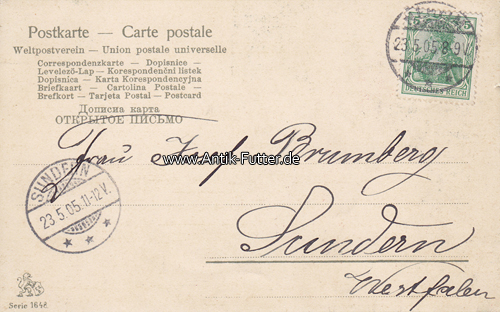 Postkarte — Carte postale
Weltpostverein — Union postale universelle
Correspondenzkarte — Dopisnice —
Levelező-Lap — Korespondenční listek
Dopisnica — Karta Korespondencyjna
Briefkaart — Cartolina Postale —
Brefkort — Tarjeta Postal — Postcard
Дописна карта
ОТКРЫТОЕ ПИСЬМО
23.5.05.8-9V.
DEUTSCHES REICH
Frau Brumberg
www.Antik-Futter.de
SUNDERN
23.5.05.11-12V.
Sundern
Westfalen
Serie 1648